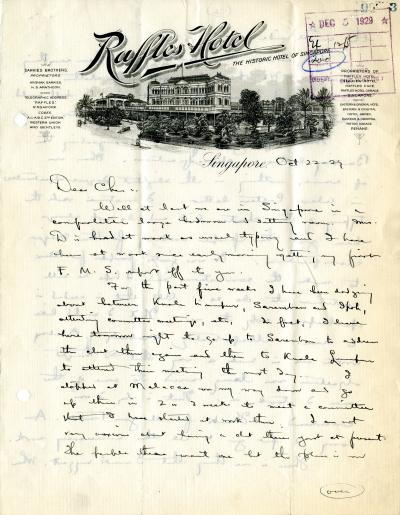 ★ DEC 5 1929 ★
Raffles Hotel
THE HISTORIC HOTEL OF SINGAPORE
SARKIES BROTHERS,
PROPRIETORS
TELEGRAPHIC ADDRESS
"RAFFLES"
SINGAPORE
CODES
A.I. A.B.C. 5TH EDITION
WESTERN UNION
AND BENTLEYS
PROPRIETORS OF
RAFFLES HOTEL
SINGAPORE
EASTERN & ORIENTAL HOTEL
PENANG
Singapore, Oct 22-29
Dear Ches:
Well at last we are in Singapore in a
comfortable large bedroom and sitting room. Mrs.
D is hard at work as usual typing and I have
been at work since early morning getting my first
F. M. S. report off to you.
For the past five weeks I have been dodging
about between Kuala Lumpur, Seremban and Ipoh,
attending committee meetings, etc. In fact, I leave
here tomorrow night to go up to Seremban to address
the club there again and then to Kuala Lumpur
to attend their meeting the next day. I
stopped at Malacca on my way down and go
up there in 2 or 3 weeks to meet a committee
that I have started at work there. I am not
very anxious about having a club there just at present.
The people there want one but the place is in
(over)